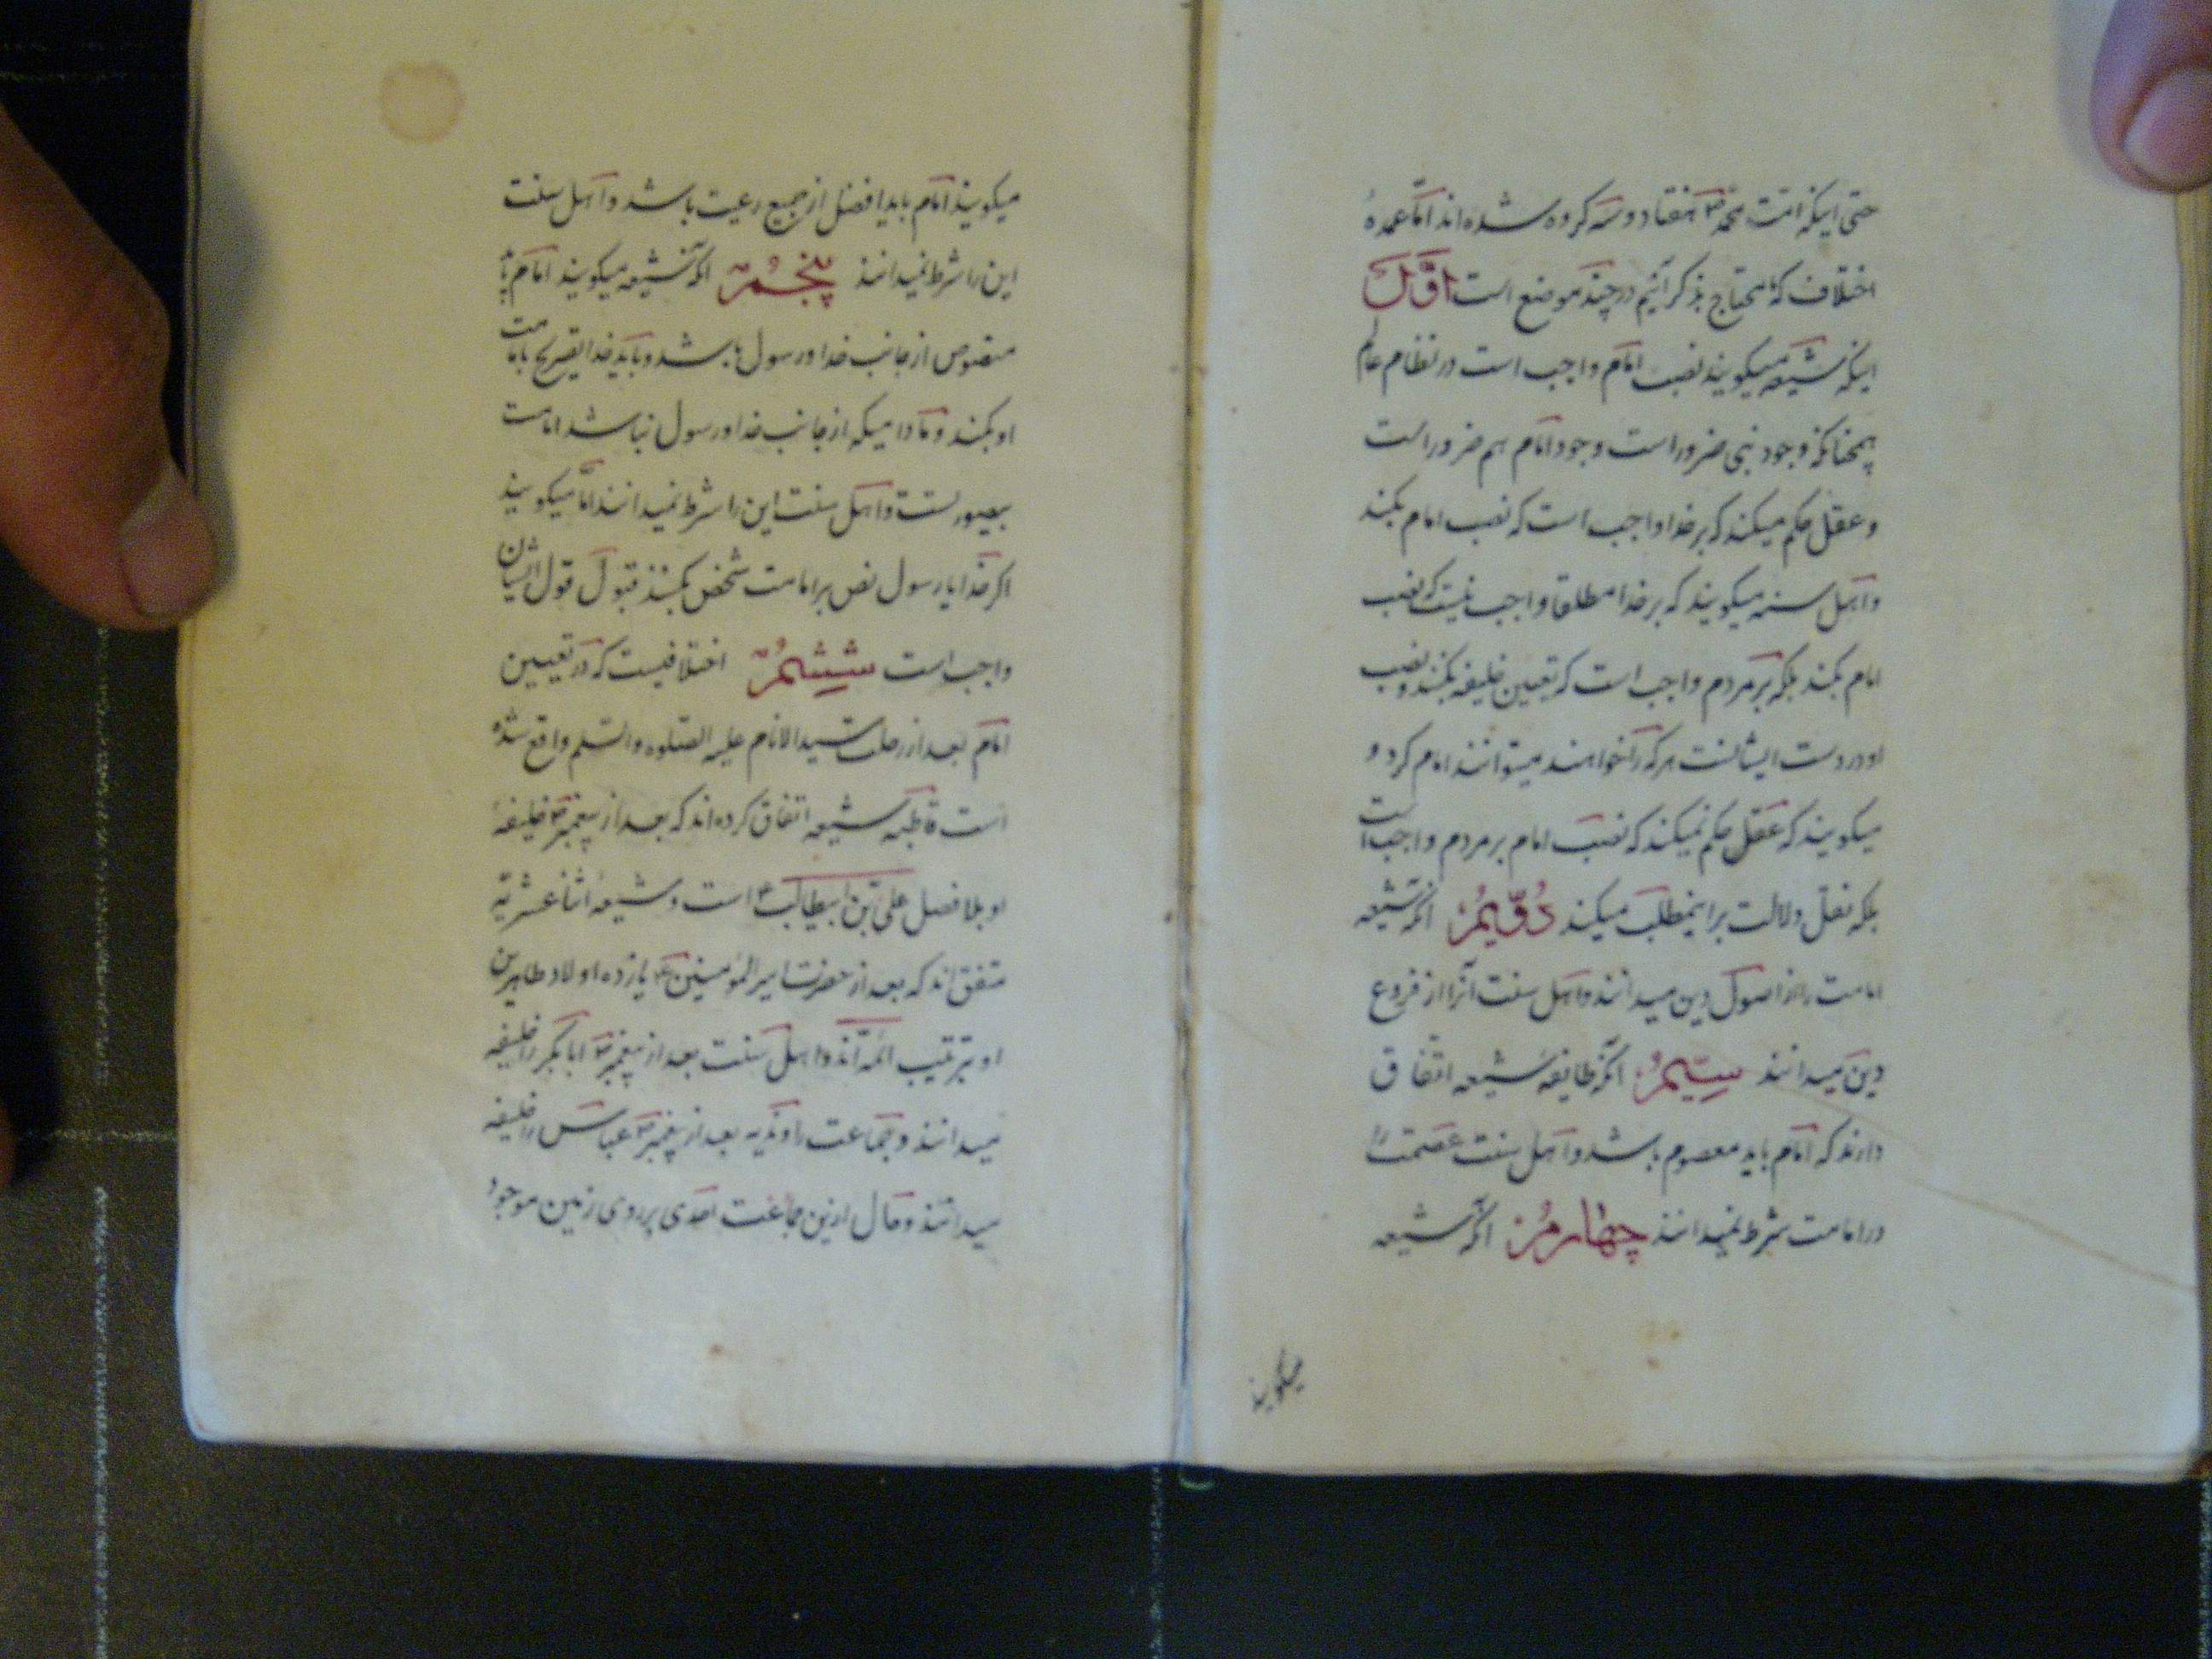 حتی اینکه امت محمد ص هفتاد و سه کروه شده اند اما عمدهٔ
اختلاف که محتاج بذکر آنیم در چند موضع است اوّل
اینکه شیعه میکویند نصب امام واجب است در نظام عالم
همچنانکه وجود نبی ضرور است وجود امام هم ضرور است
و عقل حکم میکند که بر خدا واجب است که نصب امام بکند
و اهل سنه میکویند که بر خدا مطلقا واجب نیست که نصب
امام بکند بلکه بر مردم واجب است که تعیین خلیفه بکنند و نصب
او در دست ایشانست هر که را خواهند میتوانند امام کرد و
میکویند که عقل حکم نمیکند که نصب امام بر مردم واجب است
بلکه نقل دلالت بر اینمطلب میکند دویّم انکه شیعه
امامت را از اصول دین میدانند و اهل سنت آنرا از فروع
دین میدانند سیّم انکه طایفهٔ شیعه اتفاق
دارند که امام باید معصوم باشد و اهل سنت عصمت را
در امامت شرط نمیدانند چهارم انکه شیعه
میکویند
میکویند امام باید افضل از جمیع رعیت باشد و اهل سنت
این را شرط نمیدانند پنجم انکه شیعه میکویند امام باید
منصوص از جانب خدا و رسول باشد و باید خدا تصریح بامامت
او بکند و مادامیکه از جانب خدا و رسول نباشد امامت
بیصورتست و اهل سنت این را شرط نمیدانند اما میکویند
اکر خدا یا رسول نص بر امامت شخص بکنند قبول قول ایشان
واجب است ششم اختلافیست که در تعیین
امام بعد از رحلت سید الانام علیه الصلوه والسلم واقع شده
است قاطبهٔ شیعه اتفاق کرده اند که بعد از پیغمبر ص خلیفهٔ
او بلا فصل علی بن ابیطالب ع است و شیعهٔ اثنا عشریه
متفق اند که بعد از حضرت امیر المؤمنین ع یازده اولاد طاهرین
او بترتیب ائمه اند و اهل سنت بعد از پیغمبر ص ابابکر را خلیفه
میدانند و جماعت راوندیه بعد از پیغمبر ص عباس را خلیفه
میدانند و حال ازین جماعت احدی بر روی زمین موجود